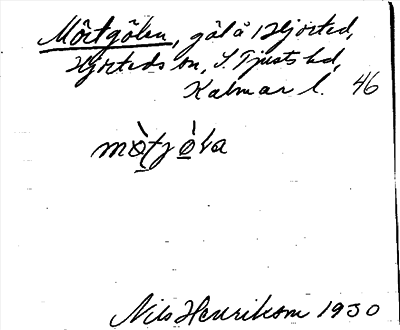 Mörtgölen, göl å Hjorted,
Hjorteds sn, S. Tjusts hd,
Kalmar l. 46
mòtjòla
Nils Henrikson 1930